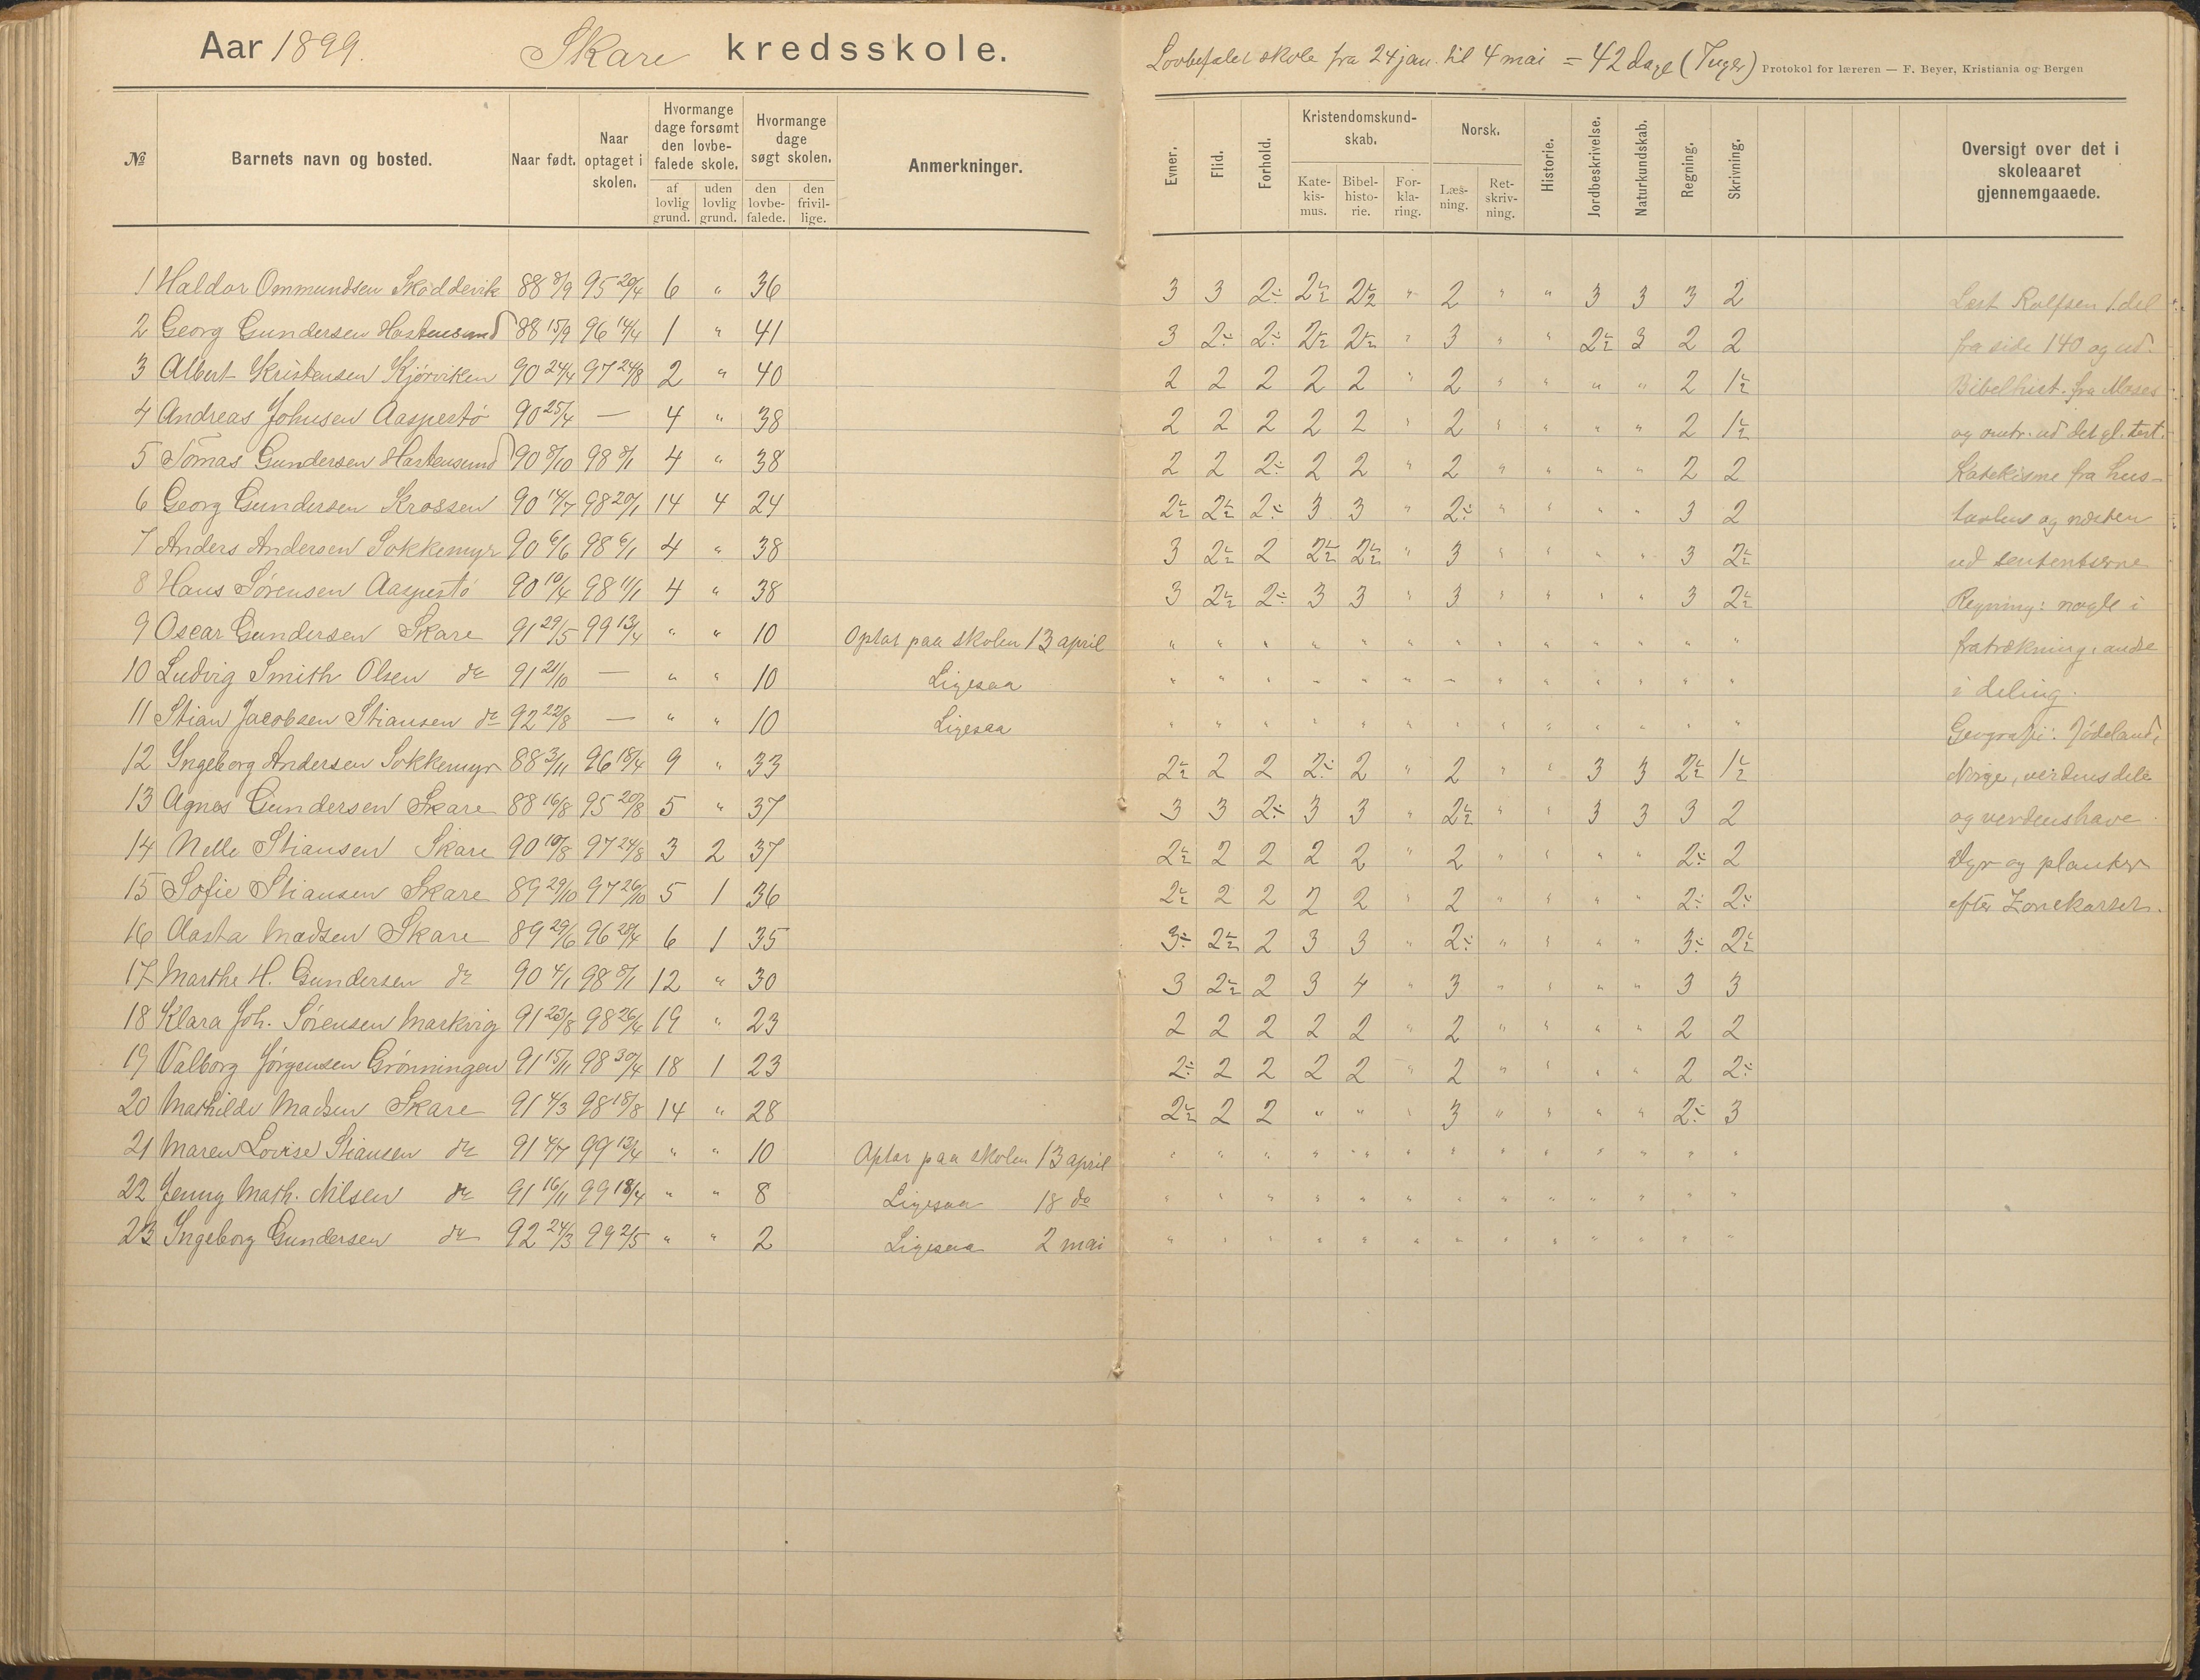 Aar 1899. Skare kredsskole.
Lovbefalet skole fra 24 jan. til 4 mai = 42 dage (7 uger)
Protokol for læreren — F. Beyer, Kristiania og Bergen
№ Barnets navn og bosted. Naar født. Naar optaget i skolen. Hvormange dage forsømt den lovbefalede skole. af lovlig grund. uden lovlig grund. Hvormange dage søgt skolen. den lovbefalede. den frivillige. Anmerkninger.
Evner. Flid. Forhold. Kristendomskundskab. Katekismus. Bibelhistorie. Forklaring. Norsk. Læsning. Retskrivning. Historie. Jordbeskrivelse. Naturkundskab. Regning. Skrivning. Oversigt over det i skoleaaret gjennemgaaede.
1 Haldor Ommundsen Skoddevik 88 8/9 95 20/4 6 " 36
2 Georg Gundersen Hastensund 88 15/9 96 14/4 1 " 41
3 Albert Kristensen Kjørviken 90 24/4 97 24/8 2 " 40
4 Andreas Johnsen Aaspestø 90 25/4 — 4 " 38
5 Tomas Gundersen Hastensund 90 8/10 98 8/1 4 " 38
6 Georg Gundersen Krossen 90 14/7 98 20/1 14 4 24
7 Anders Andersen Sokkemyr 90 6/6 98 6/1 4 " 38
8 Hans Sørensen Aaspestø 90 10/4 98 11/1 4 " 38
9 Oscar Gundersen Skare 91 29/5 99 13/4 " " 10 Optat paa skolen 13 april
10 Ludvig Smith Olsen do 91 21/10 — " " 10 Ligesaa
11 Stian Jacobsen Stiansen do 92 22/8 — " " 10 Ligesaa
12 Ingeborg Andersen Sokkemyr 88 3/11 96 18/4 9 " 33
13 Agnes Gundersen Skare 88 16/8 95 20/8 5 " 37
14 Nelle Stiansen Skare 90 10/8 97 24/8 3 2 37
15 Sofie Stiansen Skare 89 29/10 97 26/10 5 1 36
16 Aasta Madsen Skare 89 29/6 96 28/4 6 1 35
17 Marthe H. Gundersen do 90 4/1 98 8/1 12 " 30
18 Klara Joh. Sørensen Markvig 91 23/8 98 26/4 19 " 23
19 Valborg Jørgensen Grønningen 91 15/11 98 30/4 18 1 23
20 Mathilde Madsen Skare 91 4/3 98 18/8 14 " 28
21 Maren Lovise Stiansen do 91 4/7 99 13/4 " " 10 Optat paa skolen 13 april
22 Jenny Math. Nilsen do 91 16/11 99 18/4 " " 8 Ligesaa 18 do
23 Ingeborg Gundersen do 92 24/3 99 2/5 " " 2 Ligesaa 2 mai
3 3 2÷ 2½ 2½ " 2 " " 3 3 3 2
3 2÷ 2÷ 2½ 2½ " 3 " " 2½ 3 2 2
2 2 2 2 2 " 2 " " " " 2 1½
2 2 2 2 2 " 2 " " " " 2 1½
2 2 2÷ 2 2 " 2 " " " " 2 2
2½ 2½ 2÷ 3 3 " 2÷ " " " " 3 2
3 2½ 2 2½ 2½ " 3 " " " " 3 2½
3 2½ 2÷ 3 3 " 3 " " " " 3 2½
" " " " " " " " " " " " "
" " " " " " " " " " " " "
" " " " " " " " " " " " "
2½ 2 2 2÷ 2 " 2 " " 3 3 2½ 1½
3 3 2÷ 3 3 " 2½ " " 3 3 3 2
2½ 2 2 2 2 " 2 " " " " 2÷ 2
2½ 2 2 2 2 " 2 " " " " 2÷ 2÷
3÷ 2½ 2 3 3 " 2÷ " " " " 3÷ 2½
3 2½ 2 3 4 " 3 " " " " 3 3
2 2 2 2 2 " 2 " " " " 2 2
2÷ 2 2 2 2 " 2 " " " " 2 2÷
2½ 2 2 " " " 3 " " " " 2÷ 3
" " " " " " " " " " " " "
" " " " " " " " " " " " "
" " " " " " " " " " " " "
Læst Rolfsen 1. del
fra side 140 og ud.
Bibelhist. fra Moses
og omtr. ud det gl. test.
Katekisme fra hus-
tavlen og næsten
ud sententserne
Regning: nogle i
fratrækning, andre
i deling.
Geografi: Jødeland,
Norge, verdensdele
og verdenshave.
Dyr og planter
efter Zonekartet.